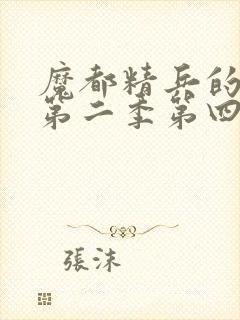 魔都精兵的
第二季第四
張沫